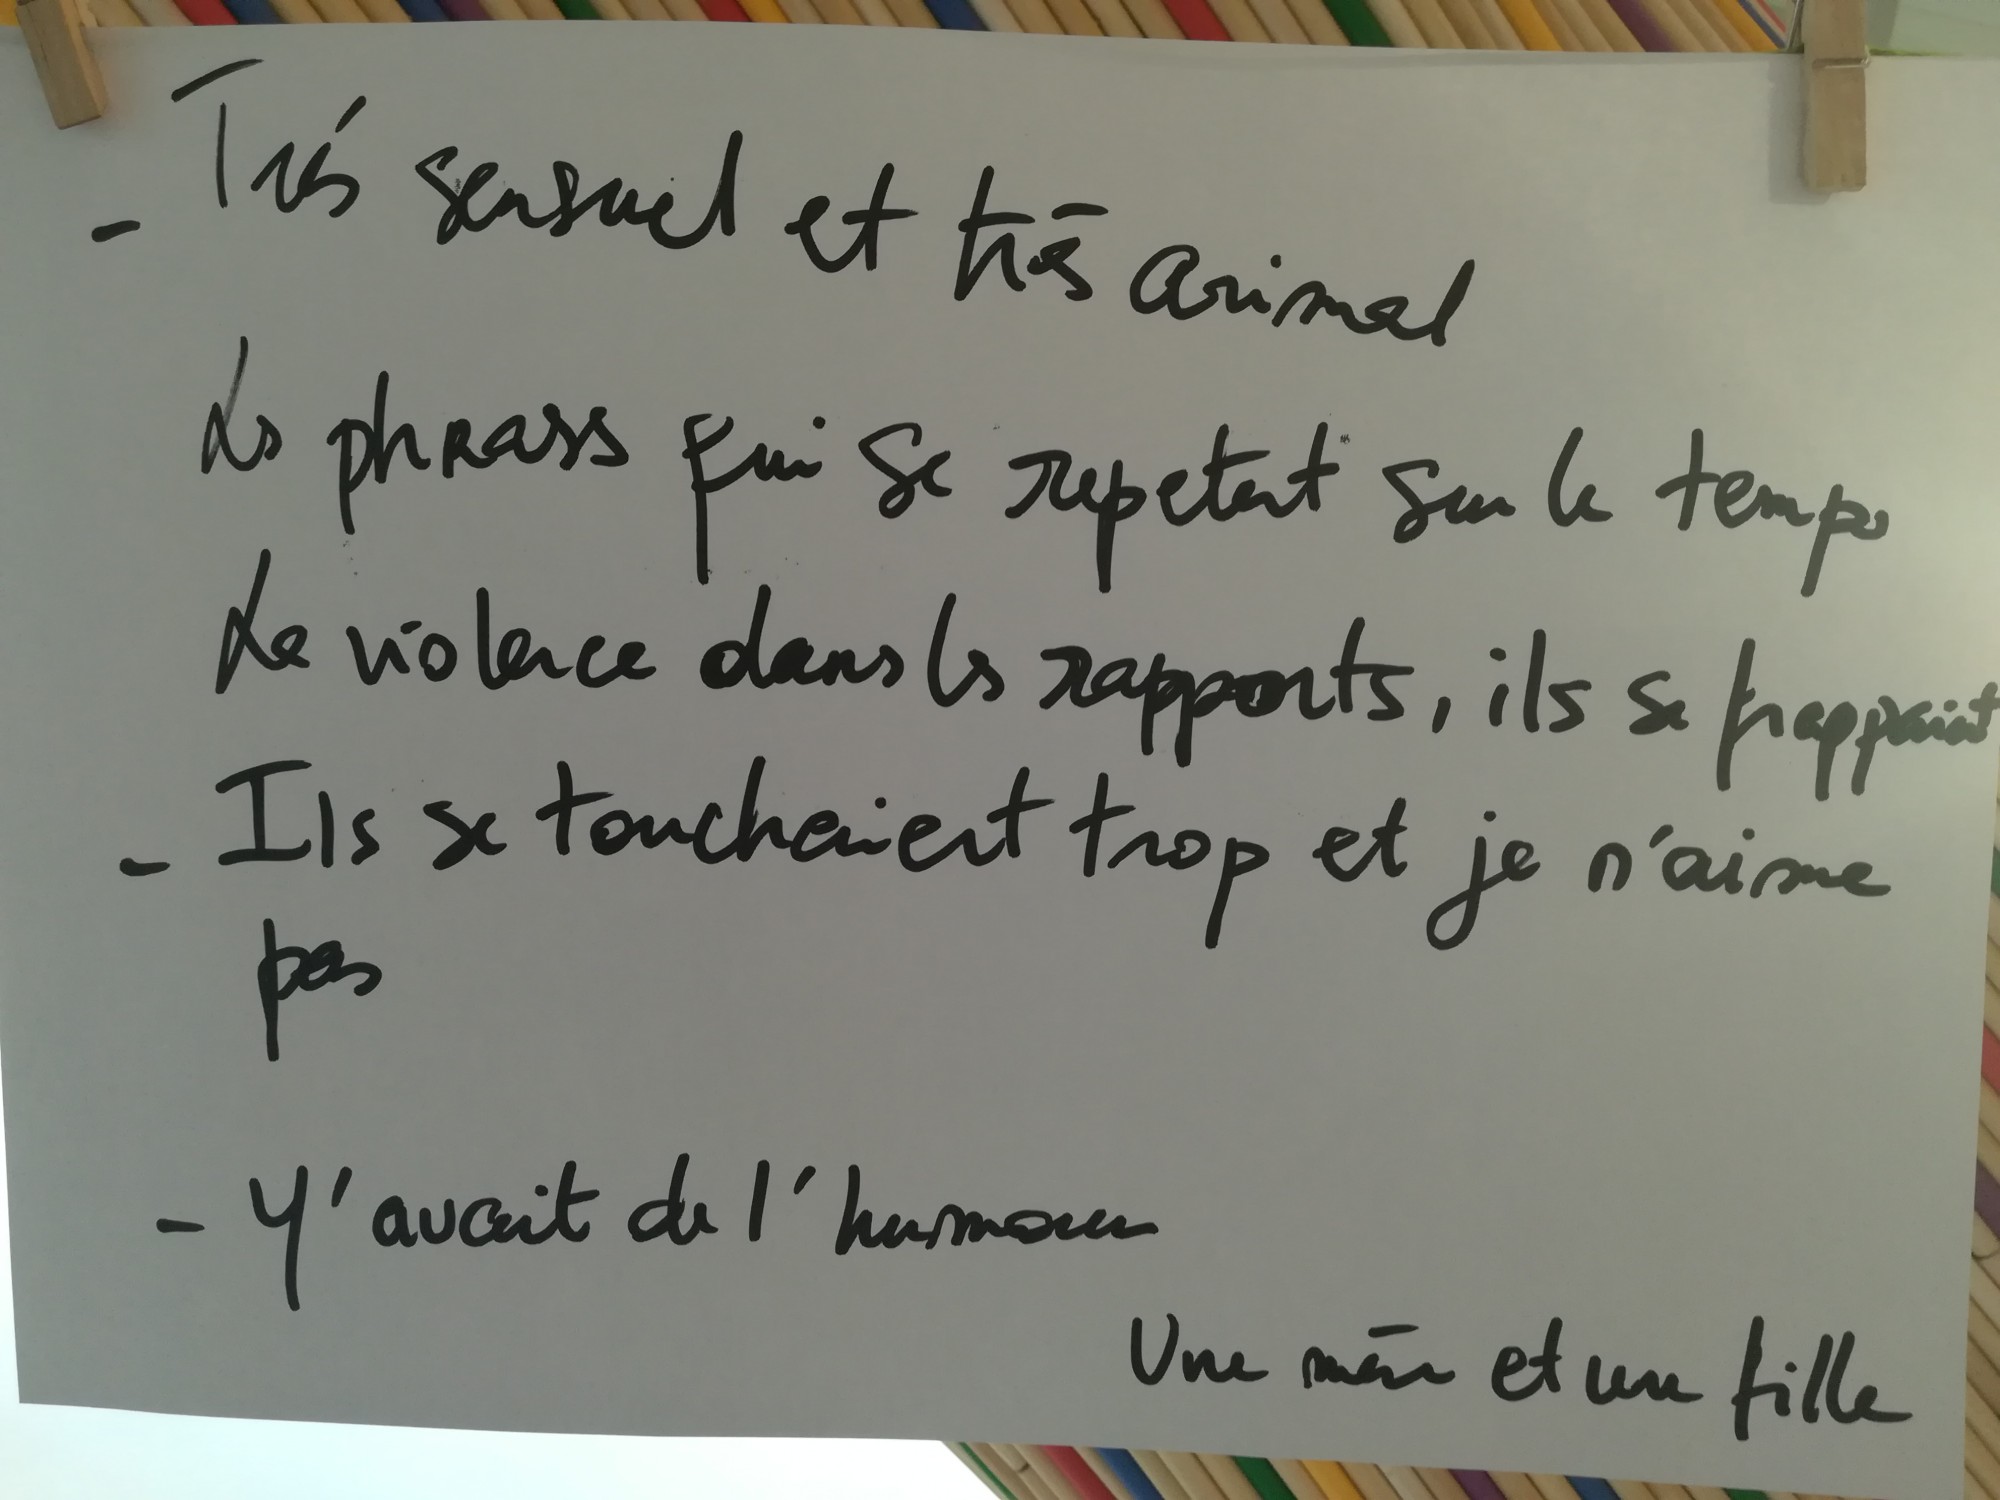 - Trés sensuel et très animal
Les phrases qui se repetent sur le temps
La violence dans les rapports, ils se frappaient
- Ils se touchaient trop et je n'aime
pas
- Y'avait de l'humour
Une mère et une fille